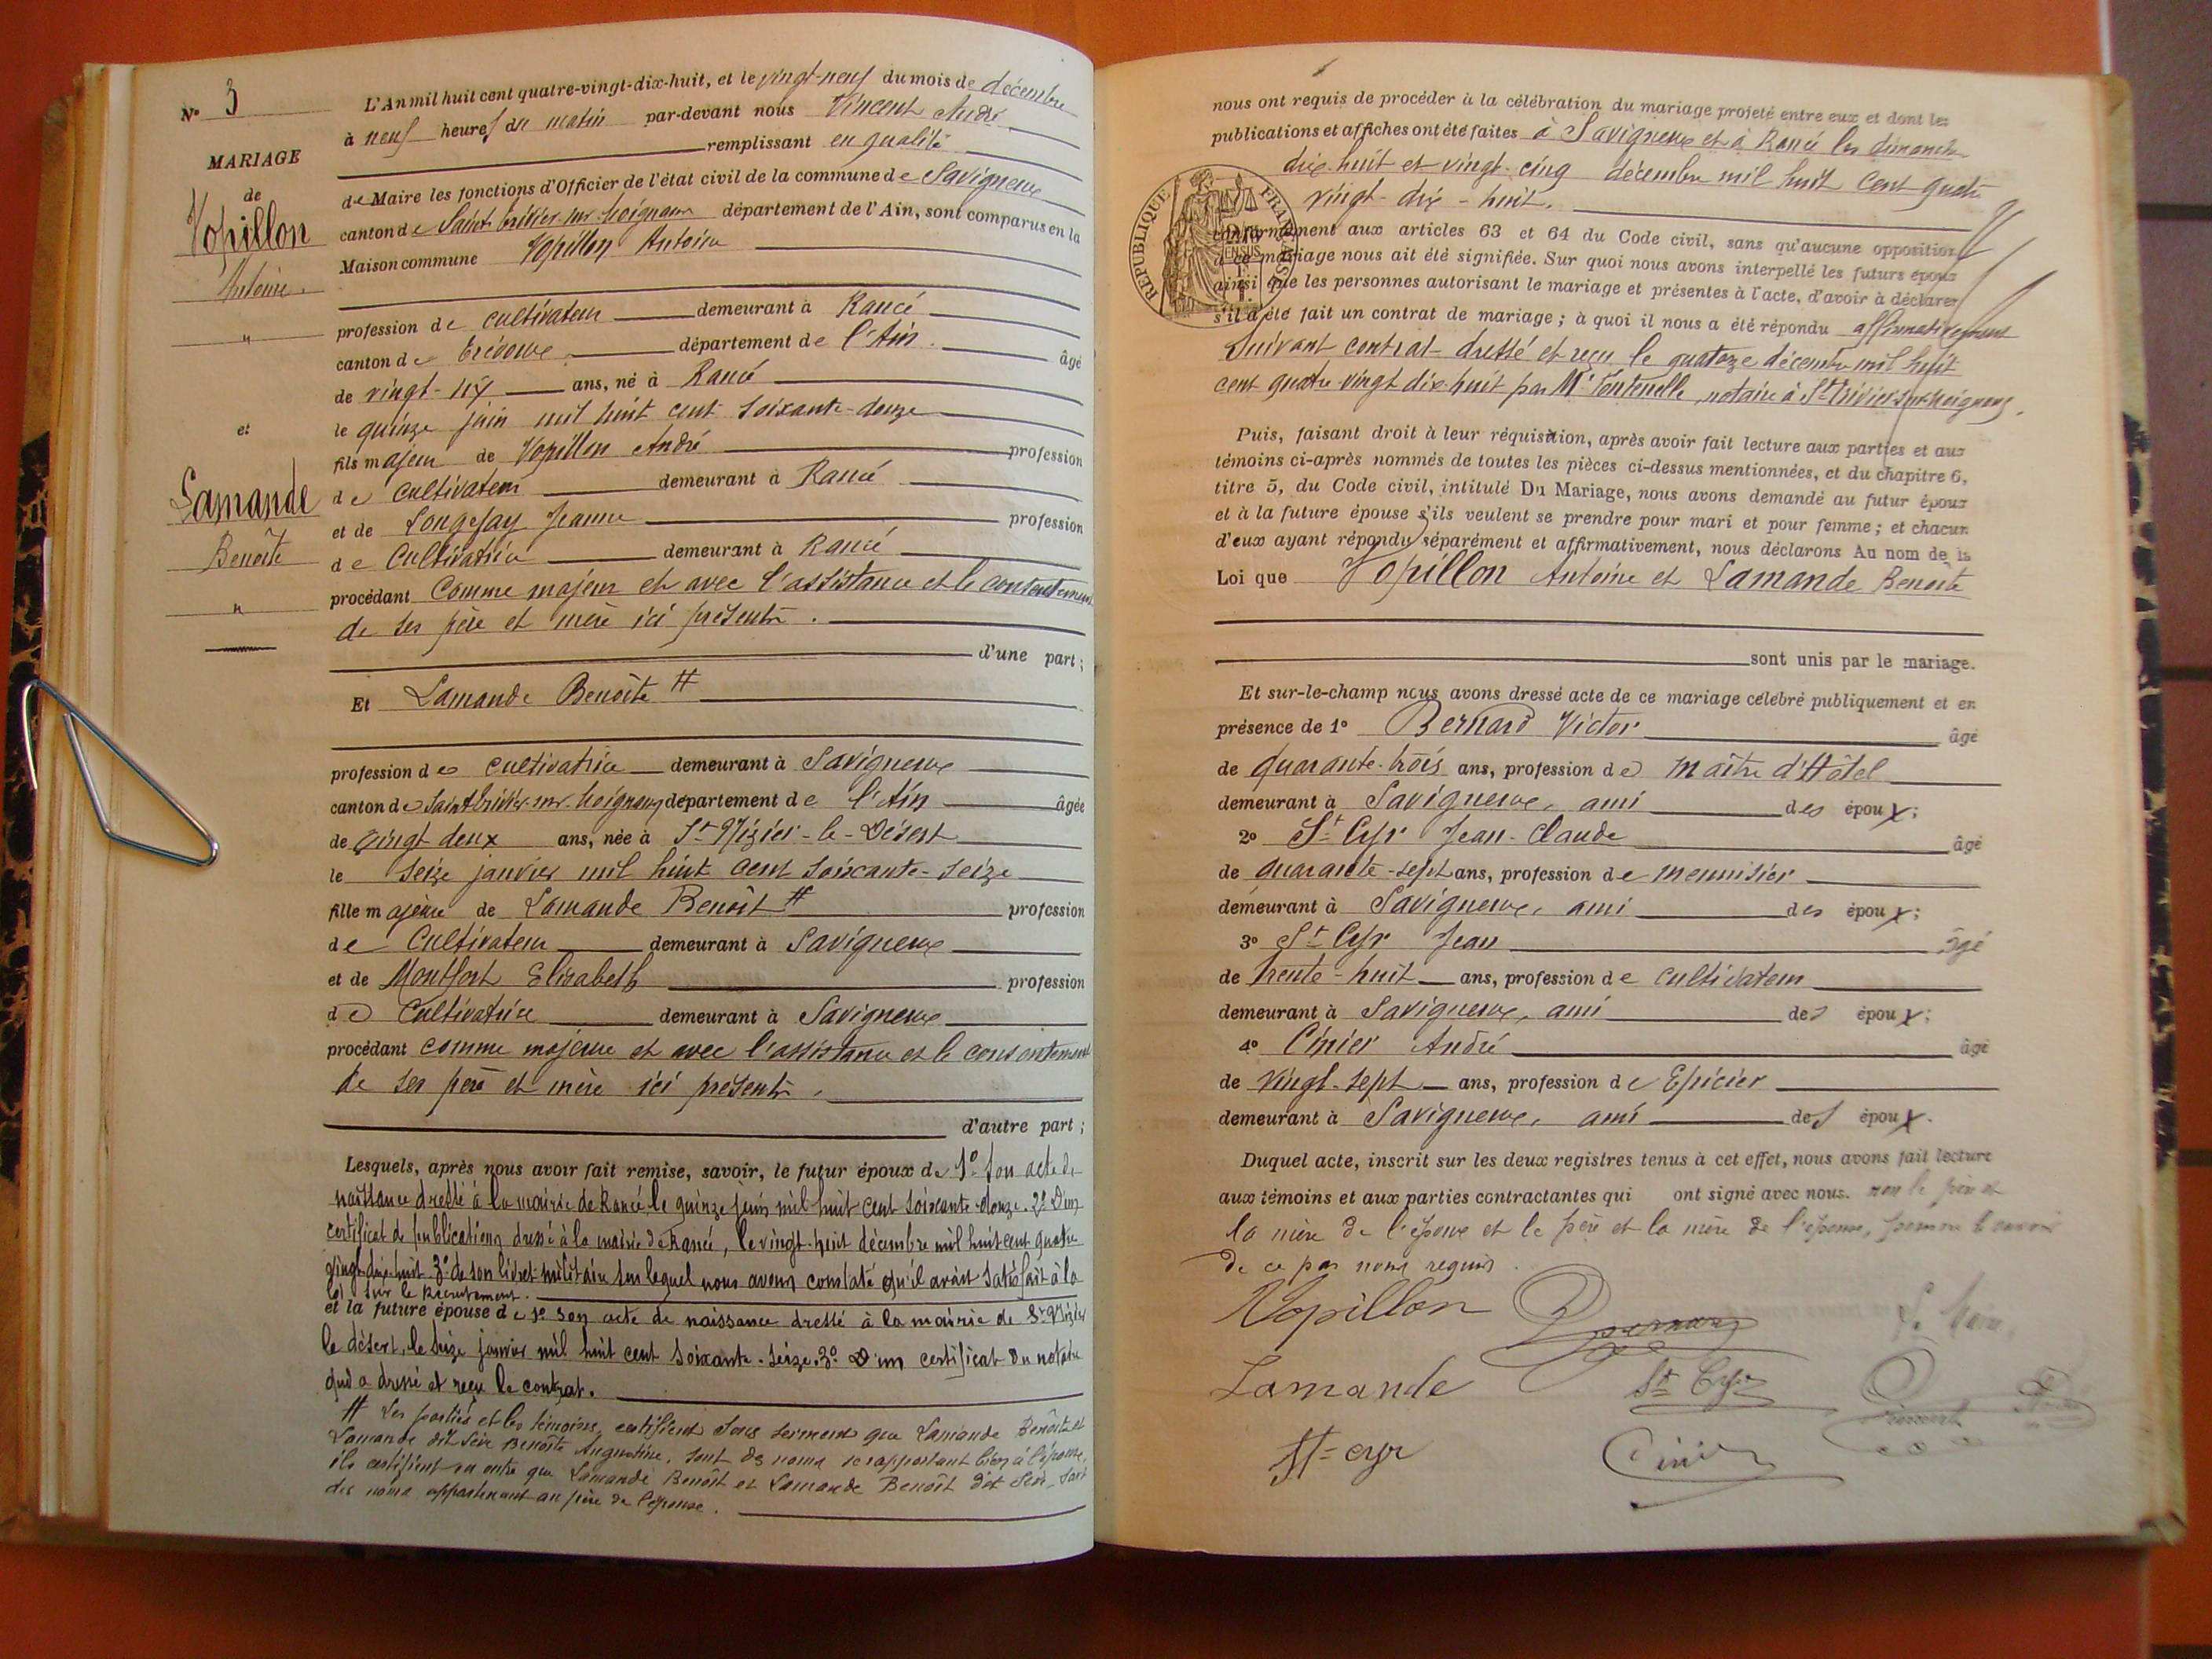 N° 3
MARIAGE
de
Vopillon
Antoine.
"
et
Lamande
Benoîte
"
L'An mil huit cent quatre-vingt-dix-huit, et le vingt-neuf du mois de décembre
à neuf heures du matin par-devant nous Vincent André
remplissant en qualité
de Maire les fonctions d'Officier de l'état civil de la commune de Savigneux
canton de Saint-trivier-sur-Moignans département de l'Ain, sont comparus en la
Maison commune Vopillon Antoine
profession de cultivateur demeurant à Rancé
canton de Trévoux département de l'Ain. âgé
de vingt-six ans, né à Rancé
le quinze juin mil huit cent soixante-douze
fils majeur de Vopillon André profession
de cultivateur demeurant à Rancé
et de Longefay Jeanne profession
de Cultivatrice demeurant à Rancé
procédant comme majeur et avec l'assistance et le consentement
de ses père et mère ici présents.
d'une part;
Et Lamande Benoîte #
profession de cultivatrice demeurant à Savigneux
canton de Saint trivier-sur-Moignans département de l'Ain âgée
de vingt deux ans, née à St Nizier-le-Désert
le seize janvier mil huit cent soixante-seize
fille majeure de Lamande Benoît # profession
de Cultivateur demeurant à Savigneux
et de Montfort Elisabeth profession
de Cultivatrice demeurant à Savigneux
procédant comme majeure et avec l'assistance et le consentement
de ses père et mère ici présents.
d'autre part;
Lesquels, après nous avoir fait remise, savoir, le futur époux de 1° son acte de
naissance dressé à la mairie de Rancé, le quinze juin mil huit cent soixante-douze. 2° D'un
certificat de publications dressé à la mairie de Rancé, le vingt-huit décembre mil huit cent quatre
vingt-dix-huit 3° de son livret militaire sur lequel nous avons constaté qu'il avait satisfait à la
loi sur le Recrutement.
et la future épouse de 1° son acte de naissance dressé à la mairie de St Nizier
le désert, le seize janvier mil huit cent soixante-seize. 3° D'un certificat du notaire
qui a dressé et reçu le contrat.
# Les parties et les témoins certifient sous serment que Lamande Benoîte et
Lamande dit Benoîte Augustine, sont des noms se rapportant bien à l'épouse,
ils certifient en outre que Lamande Benoît et Lamande Benoît dit sont
des noms appartenant au père de l'épouse.
nous ont requis de procéder à la célébration du mariage projeté entre eux et dont les
publications et affiches ont été faites à Savigneux et à Rancé les dimanches
dix huit et vingt-cinq décembre mil huit cent quatre
vingt-dix-huit.
RÉPUBLIQUE FRANÇAISE
conformément aux articles 63 et 64 du Code civil, sans qu'aucune opposition
à ce mariage nous ait été signifiée. Sur quoi nous avons interpellé les futurs époux
ainsi que les personnes autorisant le mariage et présentes à l'acte, d'avoir à déclarer
s'il a été fait un contrat de mariage; à quoi il nous a été répondu affirmativement
suivant contrat dressé et reçu le quatorze décembre mil huit
cent quatre vingt dix-huit par Me Fontenelle, notaire à St Trivier-sur-Moignans.
Puis, faisant droit à leur réquisition, après avoir fait lecture aux parties et aux
témoins ci-après nommés de toutes les pièces ci-dessus mentionnées, et du chapitre 6,
titre 5, du Code civil, intitulé Du Mariage, nous avons demandé au futur époux
et à la future épouse s'ils veulent se prendre pour mari et pour femme; et chacun
d'eux ayant répondu séparément et affirmativement, nous déclarons Au nom de la
Loi que Vopillon Antoine et Lamande Benoîte
sont unis par le mariage.
Et sur-le-champ nous avons dressé acte de ce mariage célébré publiquement et en
présence de 1° Bernard Victor âgé
de quarante-trois ans, profession de maître d'Hôtel
demeurant à Savigneux, ami des époux;
2° St Cyr Jean-Claude âgé
de quarante-sept ans, profession de menuisier
demeurant à Savigneux, ami des époux;
3° St Cyr Jean âgé
de trente-huit ans, profession de cultivateur
demeurant à Savigneux, ami des époux;
4° Cinier André âgé
de vingt-sept ans, profession de Epicier
demeurant à Savigneux, ami des époux.
Duquel acte, inscrit sur les deux registres tenus à cet effet, nous avons fait lecture
aux témoins et aux parties contractantes qui ont signé avec nous. non le père et
la mère de l'époux et le père et la mère de l'épouse, pour ne le savoir
de ce par nous requis.
Vopillon
Lamande
St Cyr
St-cyr
Cinier
Vincent